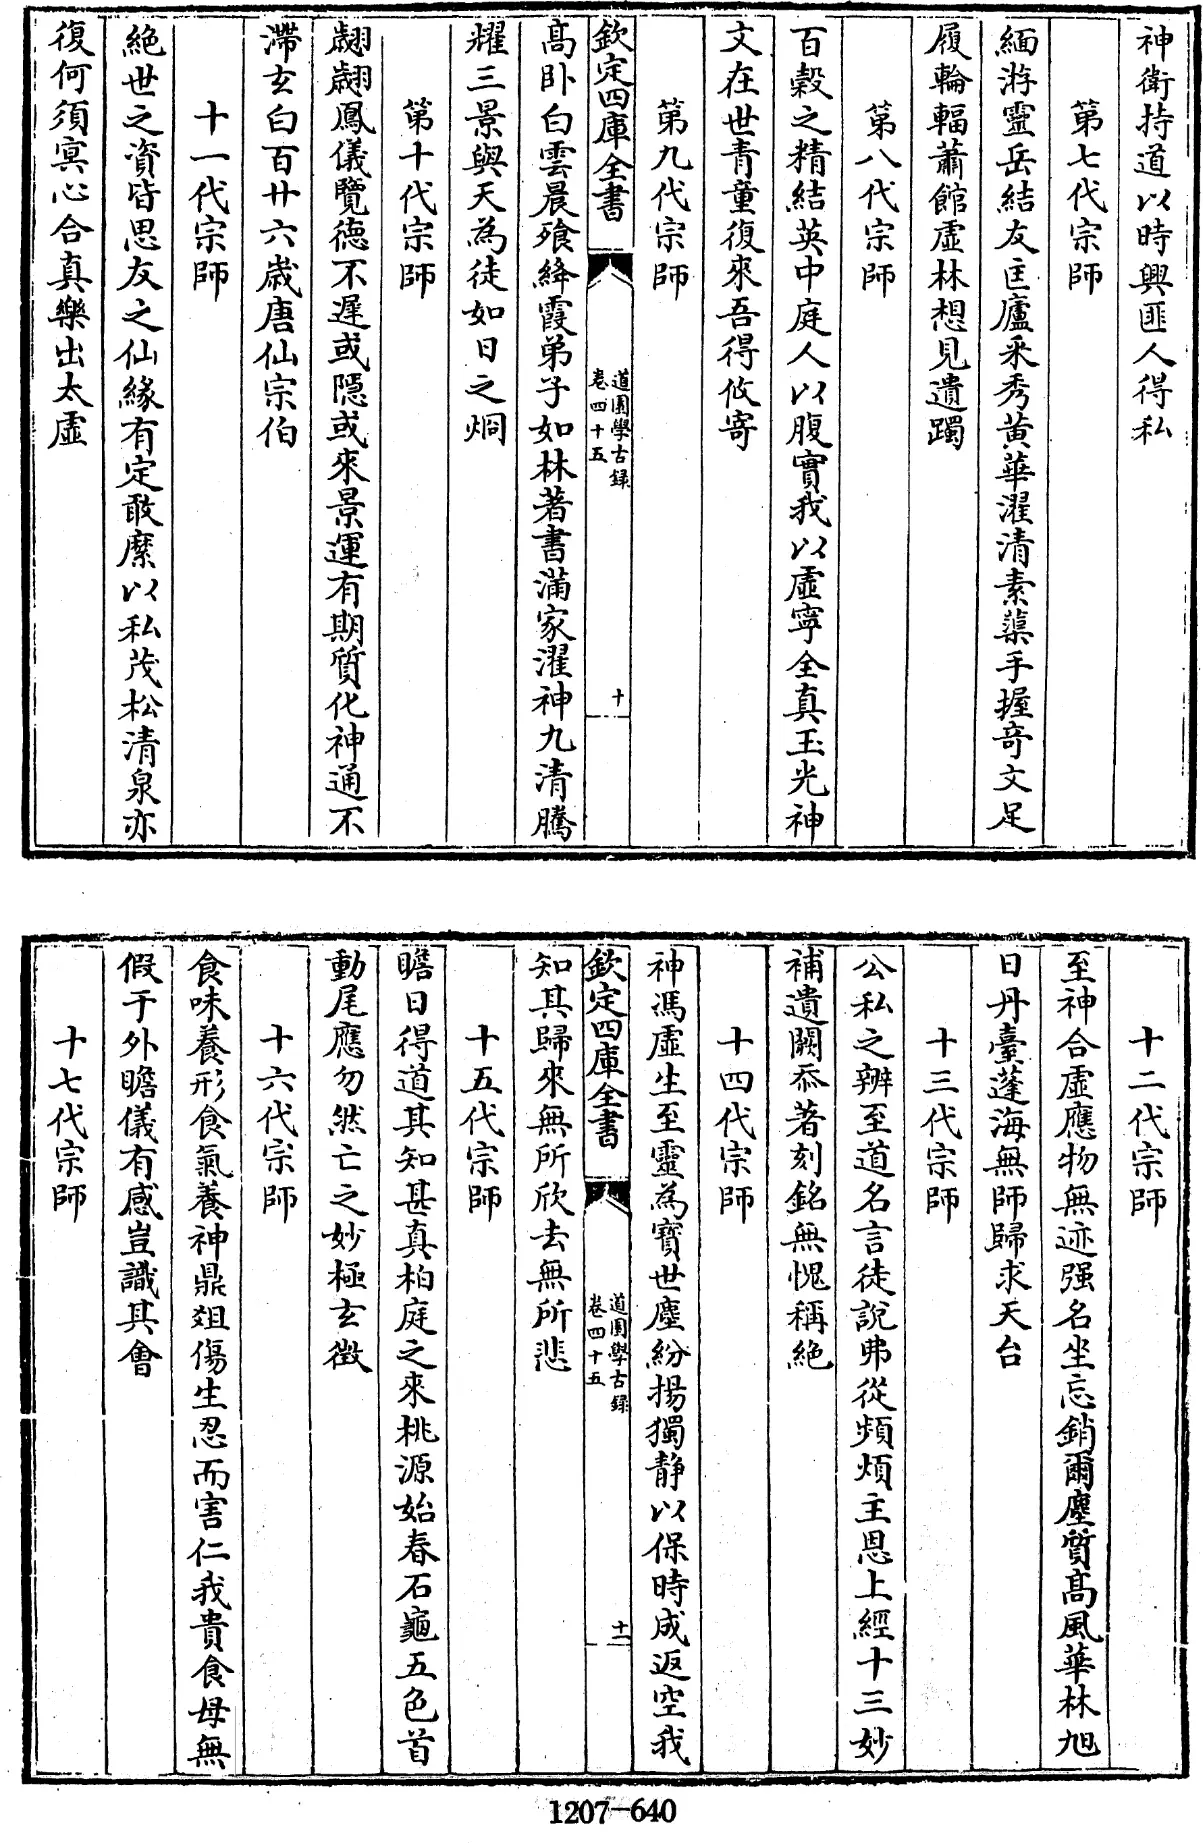 神衛持道以時興匪人得私
第七代宗師
緬游靈岳結友匡廬采秀黄華濯清素蕖手握竒文足
履輪輻蕭館虚林想見遺躅
第八代宗師
百穀之精結英中庭人以腹實我以虚寧全真玉光神
文在世青童復來吾得攸寄
第九代宗師
欽定四庫全書
道園學古録
卷四十五
十
髙卧白雲晨飱絳霞弟子如林著書滿家濯神九清騰
耀三景與天為徒如日之烱
第十代宗師
翽翽鳳儀覽德不遲或隠或來景運有期質化神通不
滯玄白百廿六歳唐仙宗伯
十一代宗師
絶世之資皆思友之仙緣有定敢縻以私茂松清泉亦
復何須寘心合真樂出太虚
十二代宗師
至神合虚應物無迹强名坐忘銷爾塵質髙風華林旭
日丹臺蓬海無師歸求天台
十三代宗師
公私之辨至道名言徒說弗從頻煩主恩上經十三妙
補遺闕忝著刻銘無愧稱絶
十四代宗師
神馮虚生至靈為寳世塵紛揚獨静以保時成返空我
欽定四庫全書
道園學古録
卷四十五
十一
知其歸來無所欣去無所悲
十五代宗師
瞻日得道其知甚真柏庭之來桃源始春石龜五色首
動尾應勿然亡之妙極玄徴
十六代宗師
食味養形食氣養神鼎爼傷生忍而害仁我貴食母無
假于外瞻儀有感豈識其會
十七代宗師
1207-640